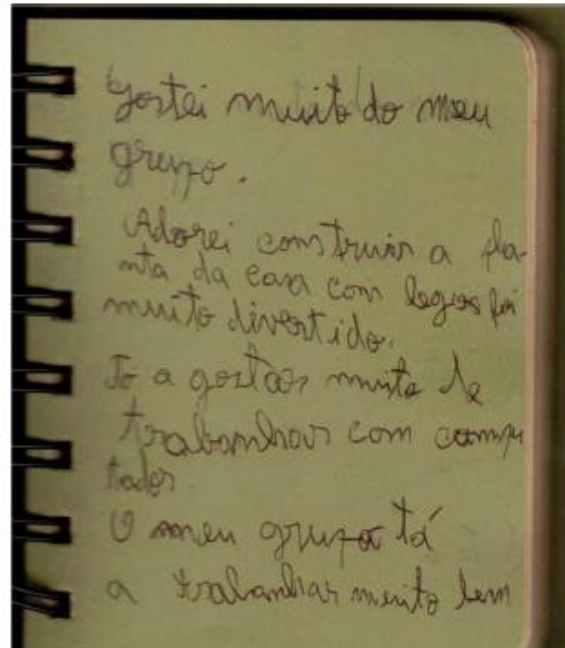 Gostei muito do meu
grupo.
Adorei construir a pla-
nta da casa com legos foi
muito divertido.
Tô a gostar muito de
trabanhar com compu
tador
O meu grupo tá
a trabanhar muito bem